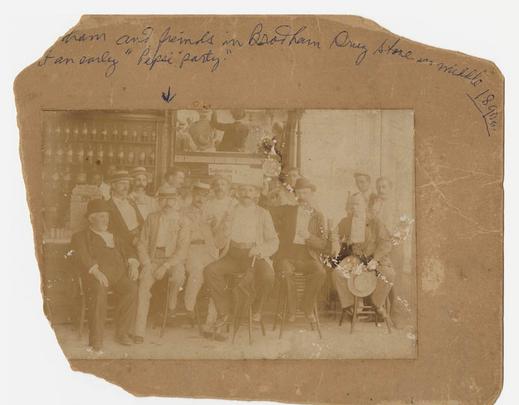 ham and friends in Bradham Drug Store in middle 1890s.
t an early "Pepsi party."